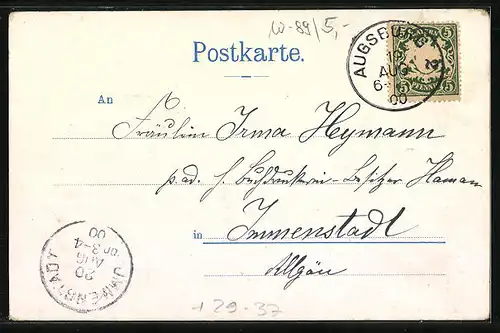 W-89/5,-
Postkarte.
AUGSBURG
AUG
00
5 PFENNIG 5
An
Fräulein Irma Heymann
p. ad. H. Buchdruckerei-Besitzer Hamann
in Immenstadt
Allgäu
IMMENSTADT
20
AUG
3-4
00
+29-37